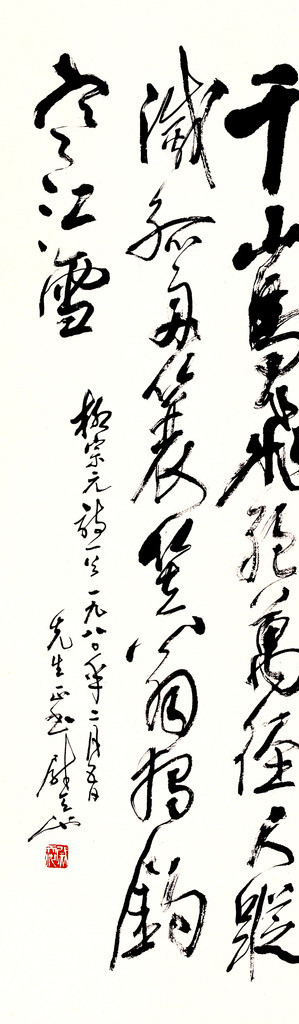 千山鳥飛絕萬徑人蹤
滅孤舟蓑笠翁獨釣
寒江雪
柳宗元詩一首一九八〇年二月五日
先生正書尉天池